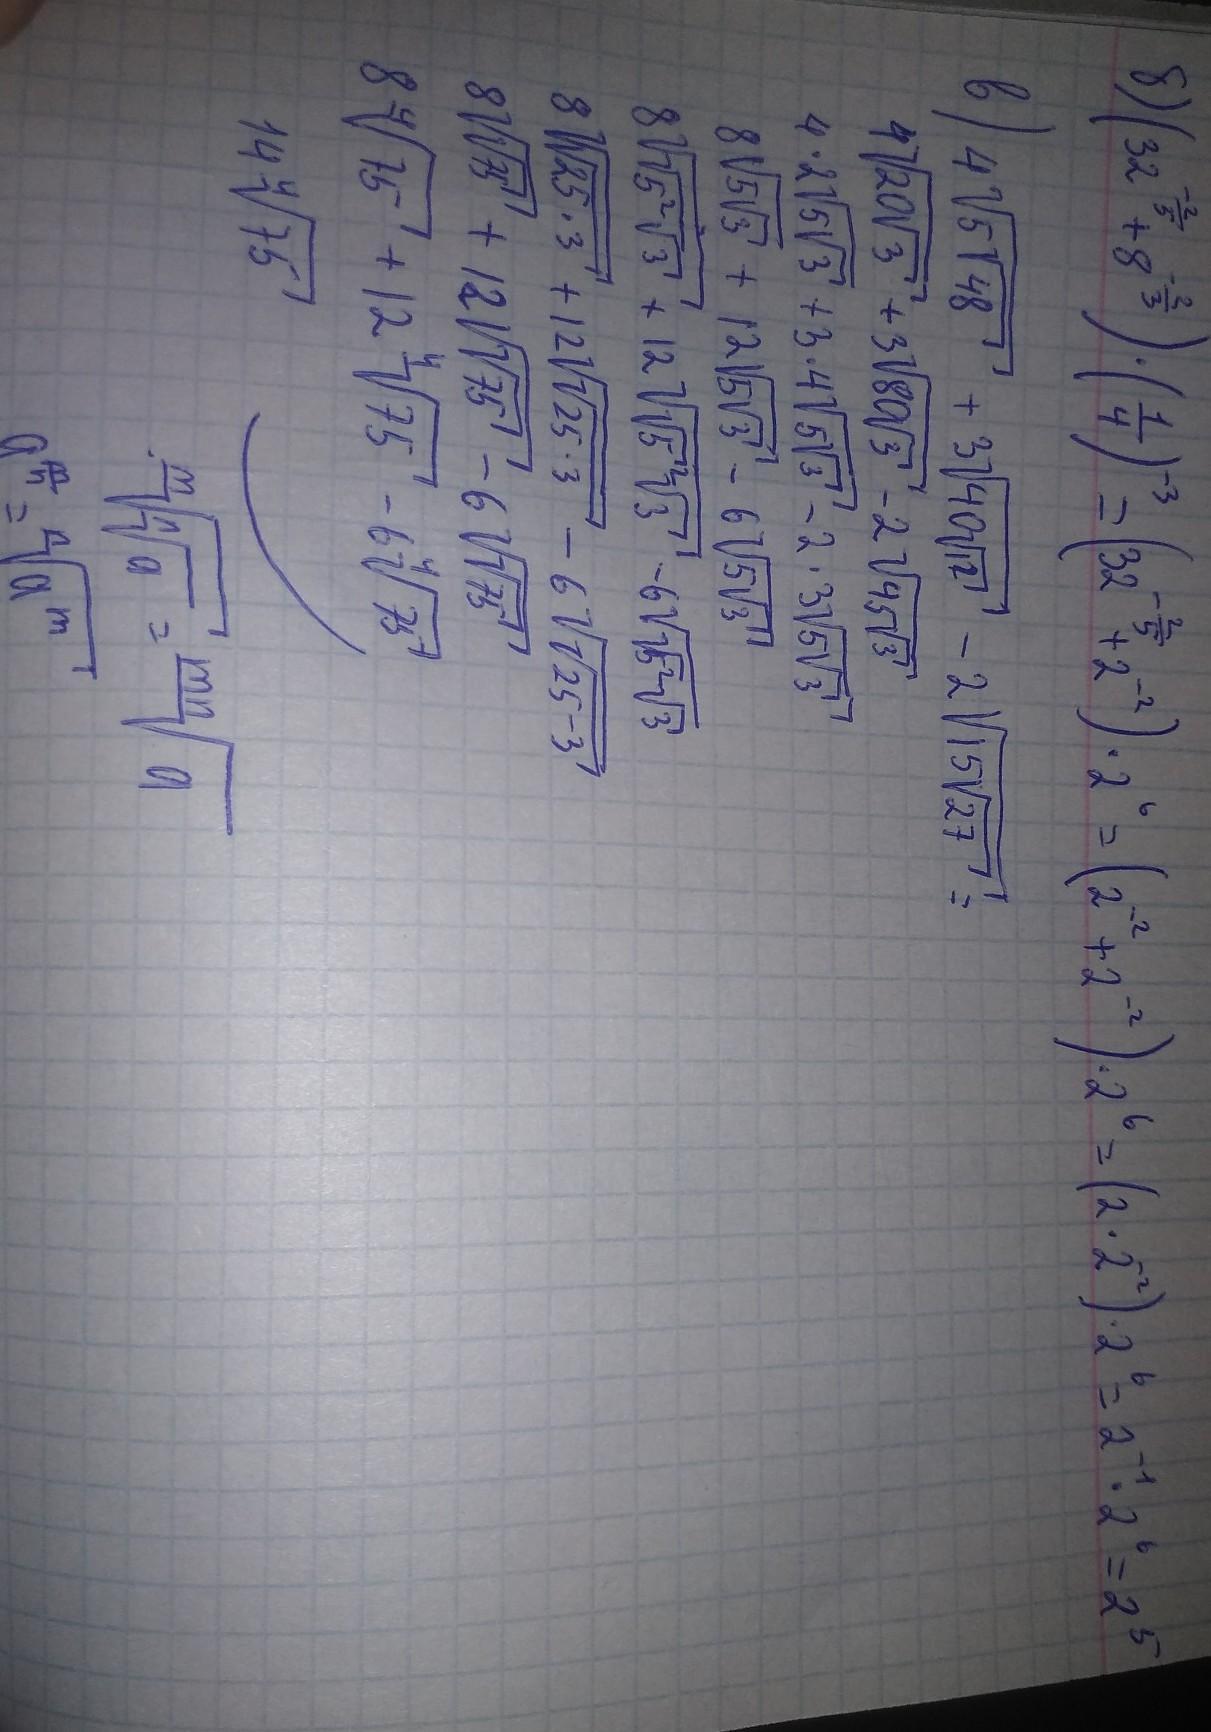 б) (32^{-2/5} + 8^{-2/3}) · (1/4)^{-3} = (32^{-2/5} + 2^{-2}) · 2^6 = (2^{-2} + 2^{-2}) · 2^6 = (2 · 2^{-2}) · 2^6 = 2^{-1} · 2^6 = 2^5
в) 4√(5√48) + 3√(40√12) − 2√(15√27) =
4√(20√3) + 3√(80√3) − 2√(45√3)
4·2√(5√3) + 3·4√(5√3) − 2·3√(5√3)
8√(5√3) + 12√(5√3) − 6√(5√3)
8√(√5²√3) + 12√(√5²√3) − 6√(√5²√3)
8√(√(25·3)) + 12√(√(25·3)) − 6√(√(25·3))
8√(√75) + 12√(√75) − 6√(√75)
8 ⁴√75 + 12 ⁴√75 − 6 ⁴√75
14 ⁴√75
ᵐ√(ⁿ√a) = ᵐⁿ√a
a^{m/n} = ⁿ√(a^m)